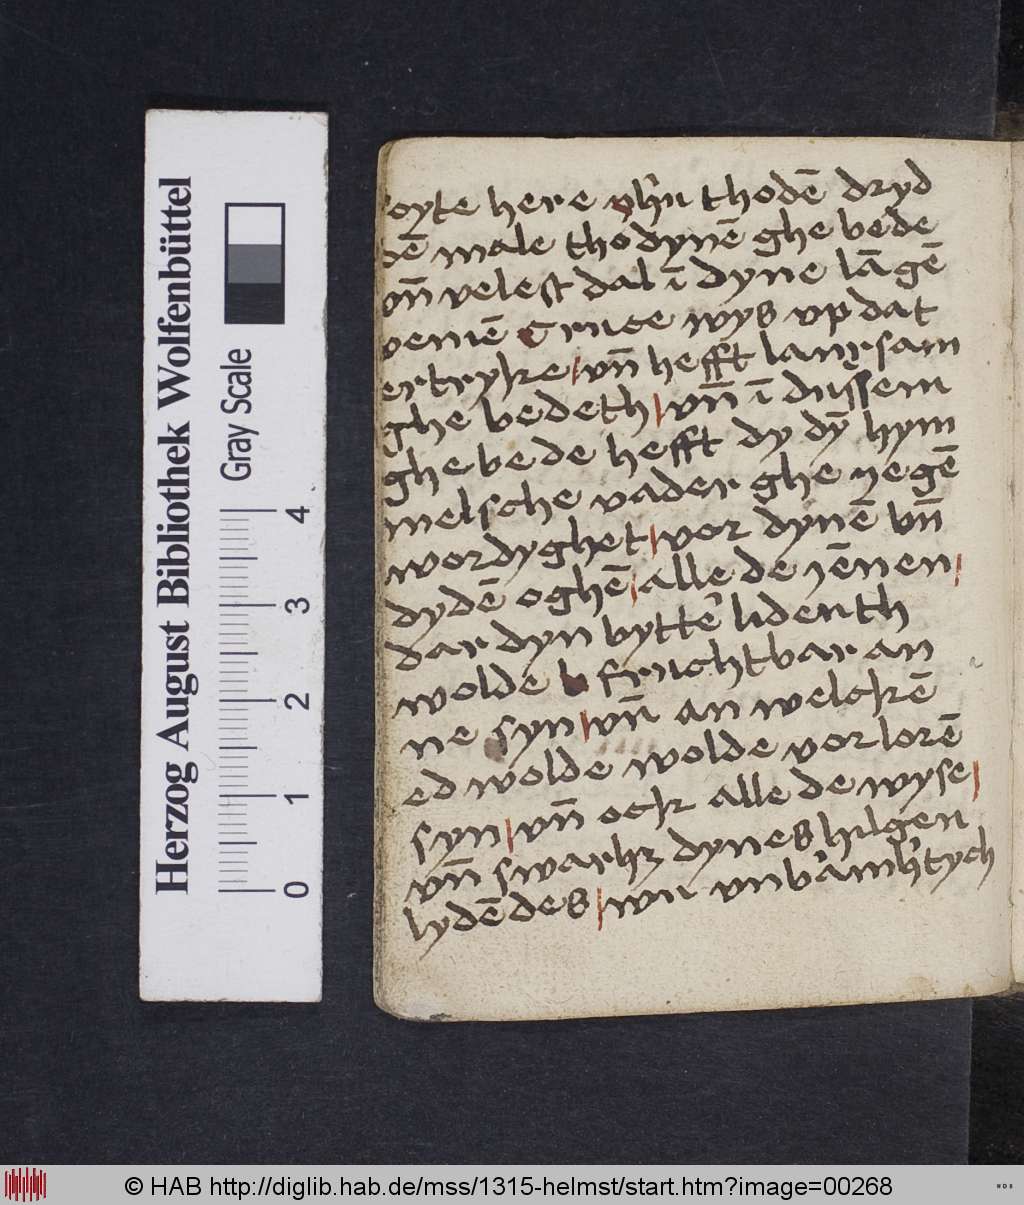 Herzog August Bibliothek Wolfenbüttel
Gray Scale
0 1 2 3 4
oyte here yhu thodē dryd
dē male tho dynē ghe bede
vn̄ velest dal ī dyne lāgē
venien Cruce wys vp dat
ertryke vn̄ hefft lancksam
ghe bedeth vn̄ ī dussem
ghe bede hefft dy dȳ hym
melsche vader ghe negē
wordyghet vor dynē vn̄
dydē oghē alle de jēnen
dar dyn bytter lident h
wolde fruchtbar an
ne syn vn̄ an welckē
ed wolde wolde vorlorē
syn vn̄ ock alle de wyse
vn̄ swarhz dynes hilgen
lydēdes wu vnbamhtych
© HAB http://diglib.hab.de/mss/1315-helmst/start.htm?image=00268